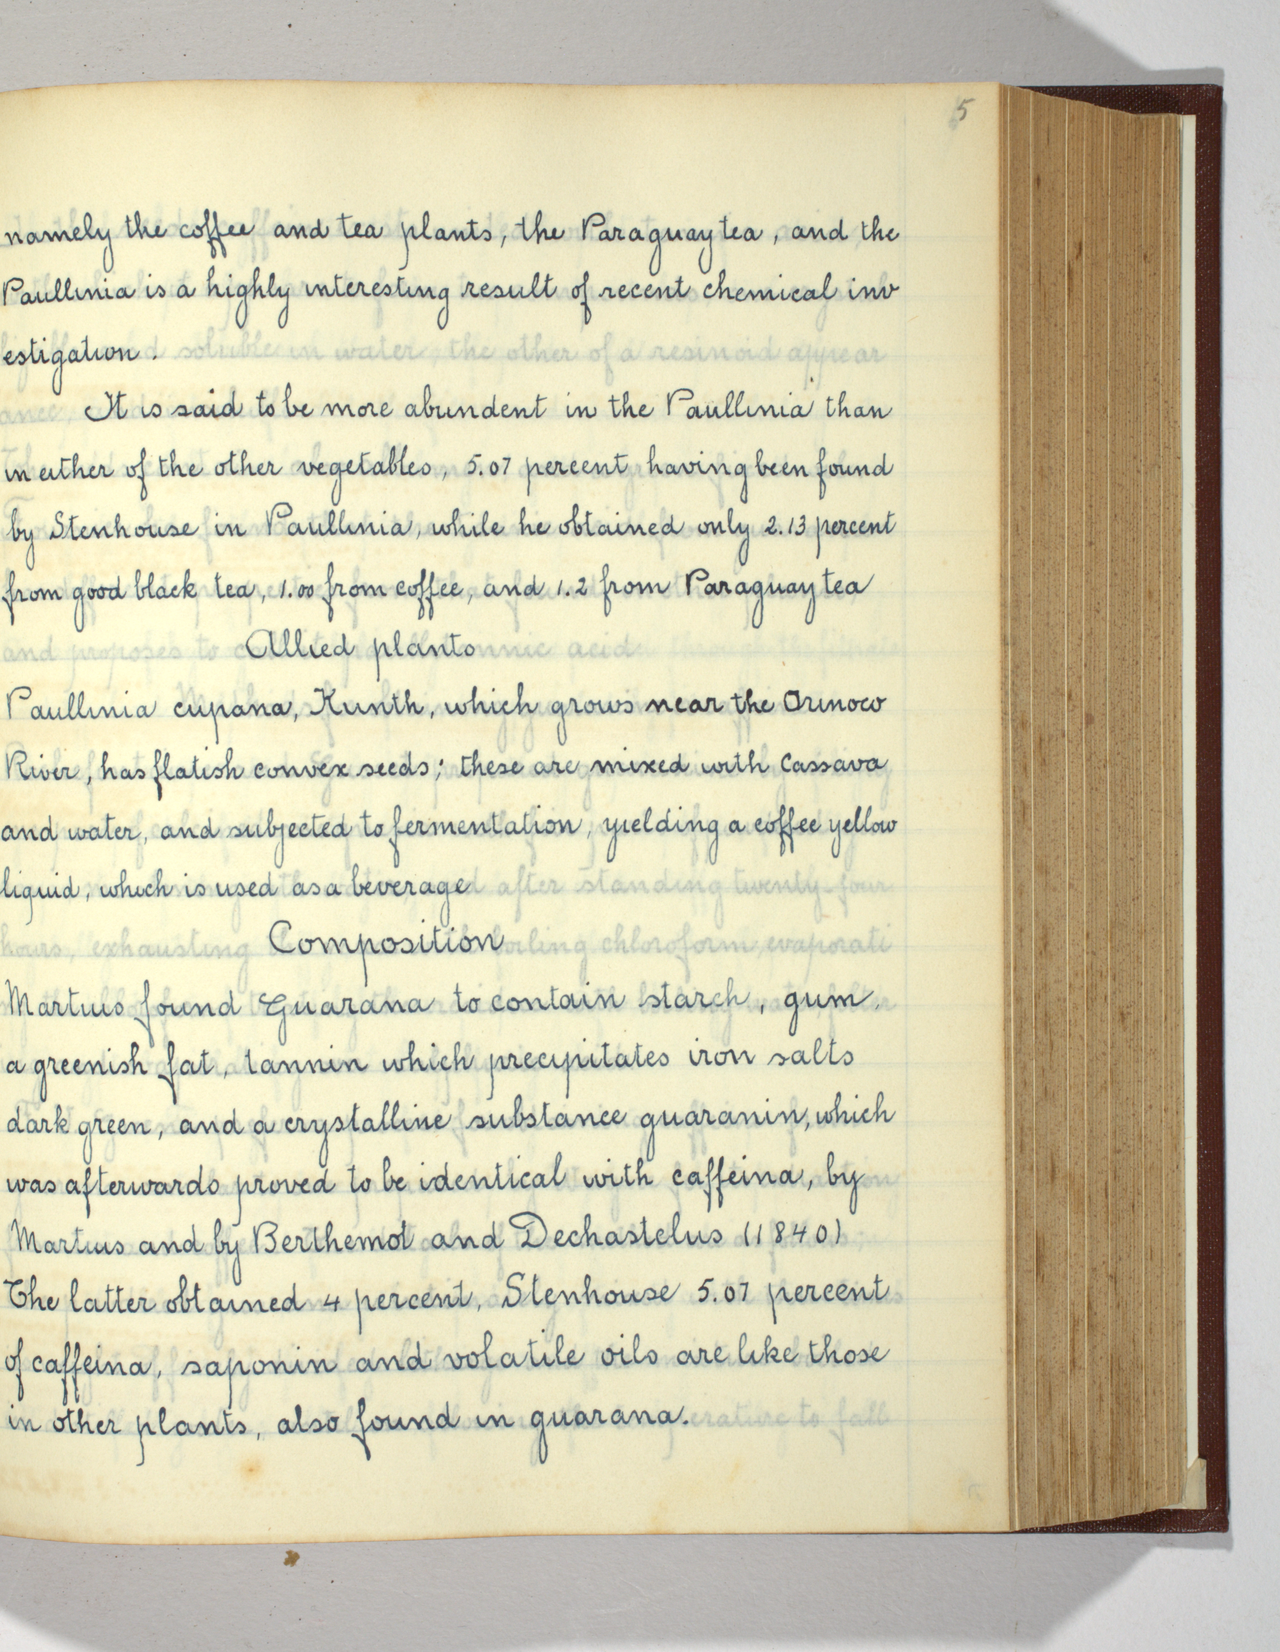 5
namely the coffee and tea plants, the Paraguay tea, and the
Paullinia is a highly interesting result of recent chemical inv
estigation.
It is said to be more abundent in the Paullinia than
in either of the other vegetables, 5.07 percent having been found
by Stenhouse in Paullinia, while he obtained only 2.13 percent
from good black tea, 1.00 from coffee, and 1.2 from Paraguay tea
Allied plants
Paullinia cupana, Kunth, which grows near the Orinoco
River, has flatish convex seeds; these are mixed with Cassava
and water, and subjected to fermentation, yielding a coffee yellow
liquid, which is used as a beverage
Composition
Martius found Guarana to contain starch, gum,
a greenish fat, tannin which precipitates iron salts
dark green, and a crystalline substance guaranin, which
was afterwards proved to be identical with caffeina, by
Martius and by Berthemot and Dechastelus (1840)
The latter obtained 4 percent, Stenhouse 5.07 percent
of caffeina, saponin and volatile oils are like those
in other plants, also found in guarana.